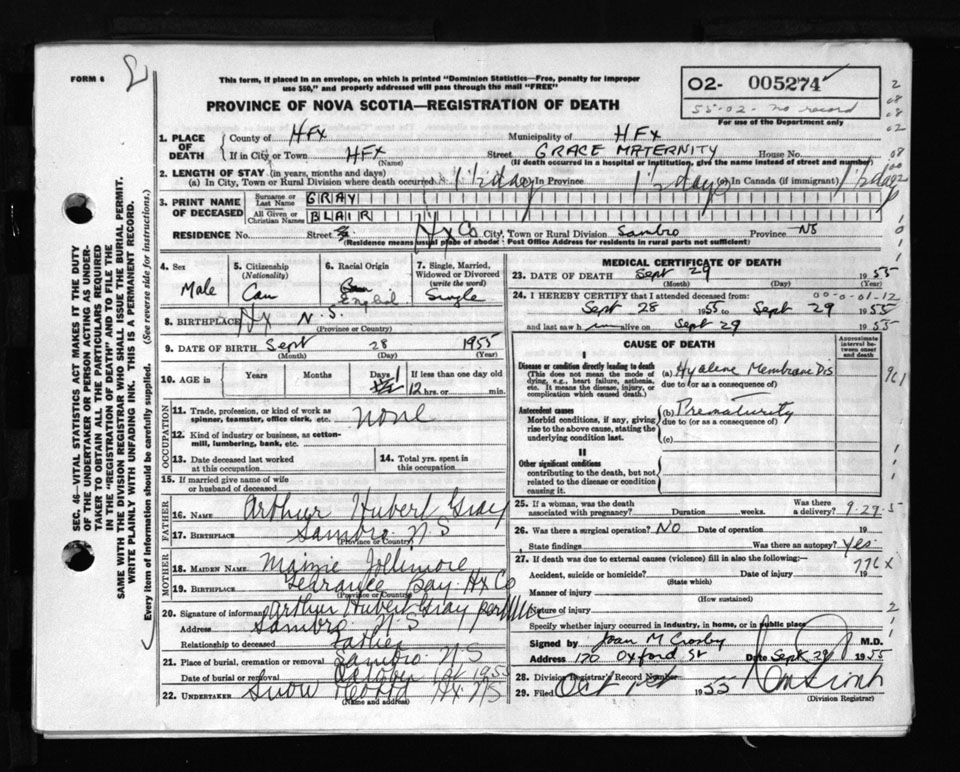 FORM 6
This form, if placed in an envelope, on which is printed "Dominion Statistics—Free, penalty for improper
use $50," and properly addressed will pass through the mail "FREE"
PROVINCE OF NOVA SCOTIA—REGISTRATION OF DEATH
02- 005274
55-02- no record
For use of the Department only
SEC. 46—VITAL STATISTICS ACT MAKES IT THE DUTY
OF THE UNDERTAKER OR PERSON ACTING AS UNDER-
TAKER TO OBTAIN ALL THE PARTICULARS REQUIRED
IN THE "REGISTRATION OF DEATH" AND TO FILE THE
SAME WITH THE DIVISION REGISTRAR WHO SHALL ISSUE THE BURIAL PERMIT.
WRITE PLAINLY WITH UNFADING INK. THIS IS A PERMANENT RECORD.
Every item of information should be carefully supplied. (See reverse side for instructions.)
1. PLACE OF DEATH County of HFX Municipality of HFX
If in City or Town HFX Street GRACE MATERNITY House No.
(Name) (If death occurred in a hospital or institution, give the name instead of street and number)
2. LENGTH OF STAY (in years, months and days)
(a) In City, Town or Rural Division where death occurred 1½ days In Province 1½ days (c) In Canada (if immigrant) 1½ days
3. PRINT NAME OF DECEASED Surname or Last Name GRAY
All Given or Christian Names BLAIR
RESIDENCE No. Street Hx Co City, Town or Rural Division Sambro Province NS
(Residence means usual place of abode: Post Office Address for residents in rural parts not sufficient)
4. Sex Male
5. Citizenship (Nationality) Can
6. Racial Origin English
7. Single, Married, Widowed or Divorced (write the word) Single
8. BIRTHPLACE Hx N.S.
(Province or Country)
9. DATE OF BIRTH Sept 28 1955
(Month) (Day) (Year)
10. AGE in Years Months Days 1 If less than one day old 12 hrs. or min.
OCCUPATION
11. Trade, profession, or kind of work as spinner, teamster, office clerk, etc. none
12. Kind of industry or business, as cotton-mill, lumbering, bank, etc.
13. Date deceased last worked at this occupation
14. Total yrs. spent in this occupation
15. If married give name of wife or husband of deceased
FATHER
16. NAME Arthur Hubert Gray
17. BIRTHPLACE Sambro N S
(Province or Country)
MOTHER
18. MAIDEN NAME Maisie Jollimore
19. BIRTHPLACE Terrance Bay Hx Co
(Province or Country)
20. Signature of informant Arthur Hubert Gray per
Address Sambro N S
Relationship to deceased Father
21. Place of burial, cremation or removal Sambro N S
Date of burial or removal October 1st 1955
22. UNDERTAKER Snow Hx NS
(Name and address)
MEDICAL CERTIFICATE OF DEATH
23. DATE OF DEATH Sept 29 1955
(Month) (Day) (Year)
24. I HEREBY CERTIFY that I attended deceased from: 00-0-01-12
Sept 28 1955 to Sept 29 1955
and last saw h im alive on Sept 29 1955
CAUSE OF DEATH
Approximate interval between onset and death
I
Disease or condition directly leading to death
(This does not mean the mode of dying, e.g., heart failure, asthenia, etc. It means the disease, injury, or complication which caused death.)
(a) Hyaline Membrane Dis
due to (or as a consequence of)
Antecedent causes
Morbid conditions, if any, giving rise to the above cause, stating the underlying condition last.
(b) Prematurity
due to (or as a consequence of)
(c)
II
Other significant conditions
contributing to the death, but not related to the disease or condition causing it.
25. If a woman, was the death associated with pregnancy? Duration weeks. Was there a delivery? 9-29-5
26. Was there a surgical operation? NO Date of operation 19
State findings Was there an autopsy? Yes
27. If death was due to external causes (violence) fill in also the following:—
776X
Accident, suicide or homicide? Date of injury 19
(State which)
Manner of injury
(How sustained)
Nature of injury
Specify whether injury occurred in industry, in home, or in public place
Signed by Joan M Crosby M.D.
Address 170 Oxford St Date Sept 29 1955
28. Division Registrar's Record Number
29. Filed Oct 1st 1955
(Division Registrar)